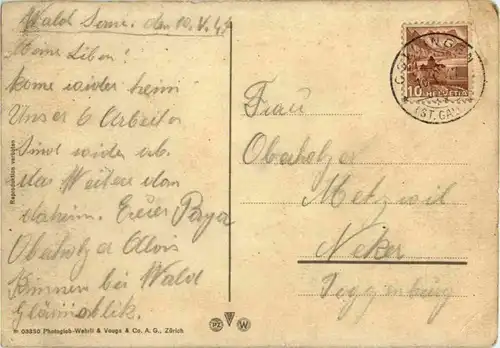 Wald Sonn. den 10. V. 47
Meine Lieben!
kome wider heim
Unser 6 Arbeiter
Sind wider ab.
das Weitere dan
daheim. Euer Papa
Oberholzer Alois
bei Wald
Reproduktion verboten
03350 Photoglob-Wehrli & Vouga & Co. A. G., Zürich
PZ W
10 HELVETIA
(ST. GAL
Frau
Oberholzer
Metzwil
Neker
Toggenburg